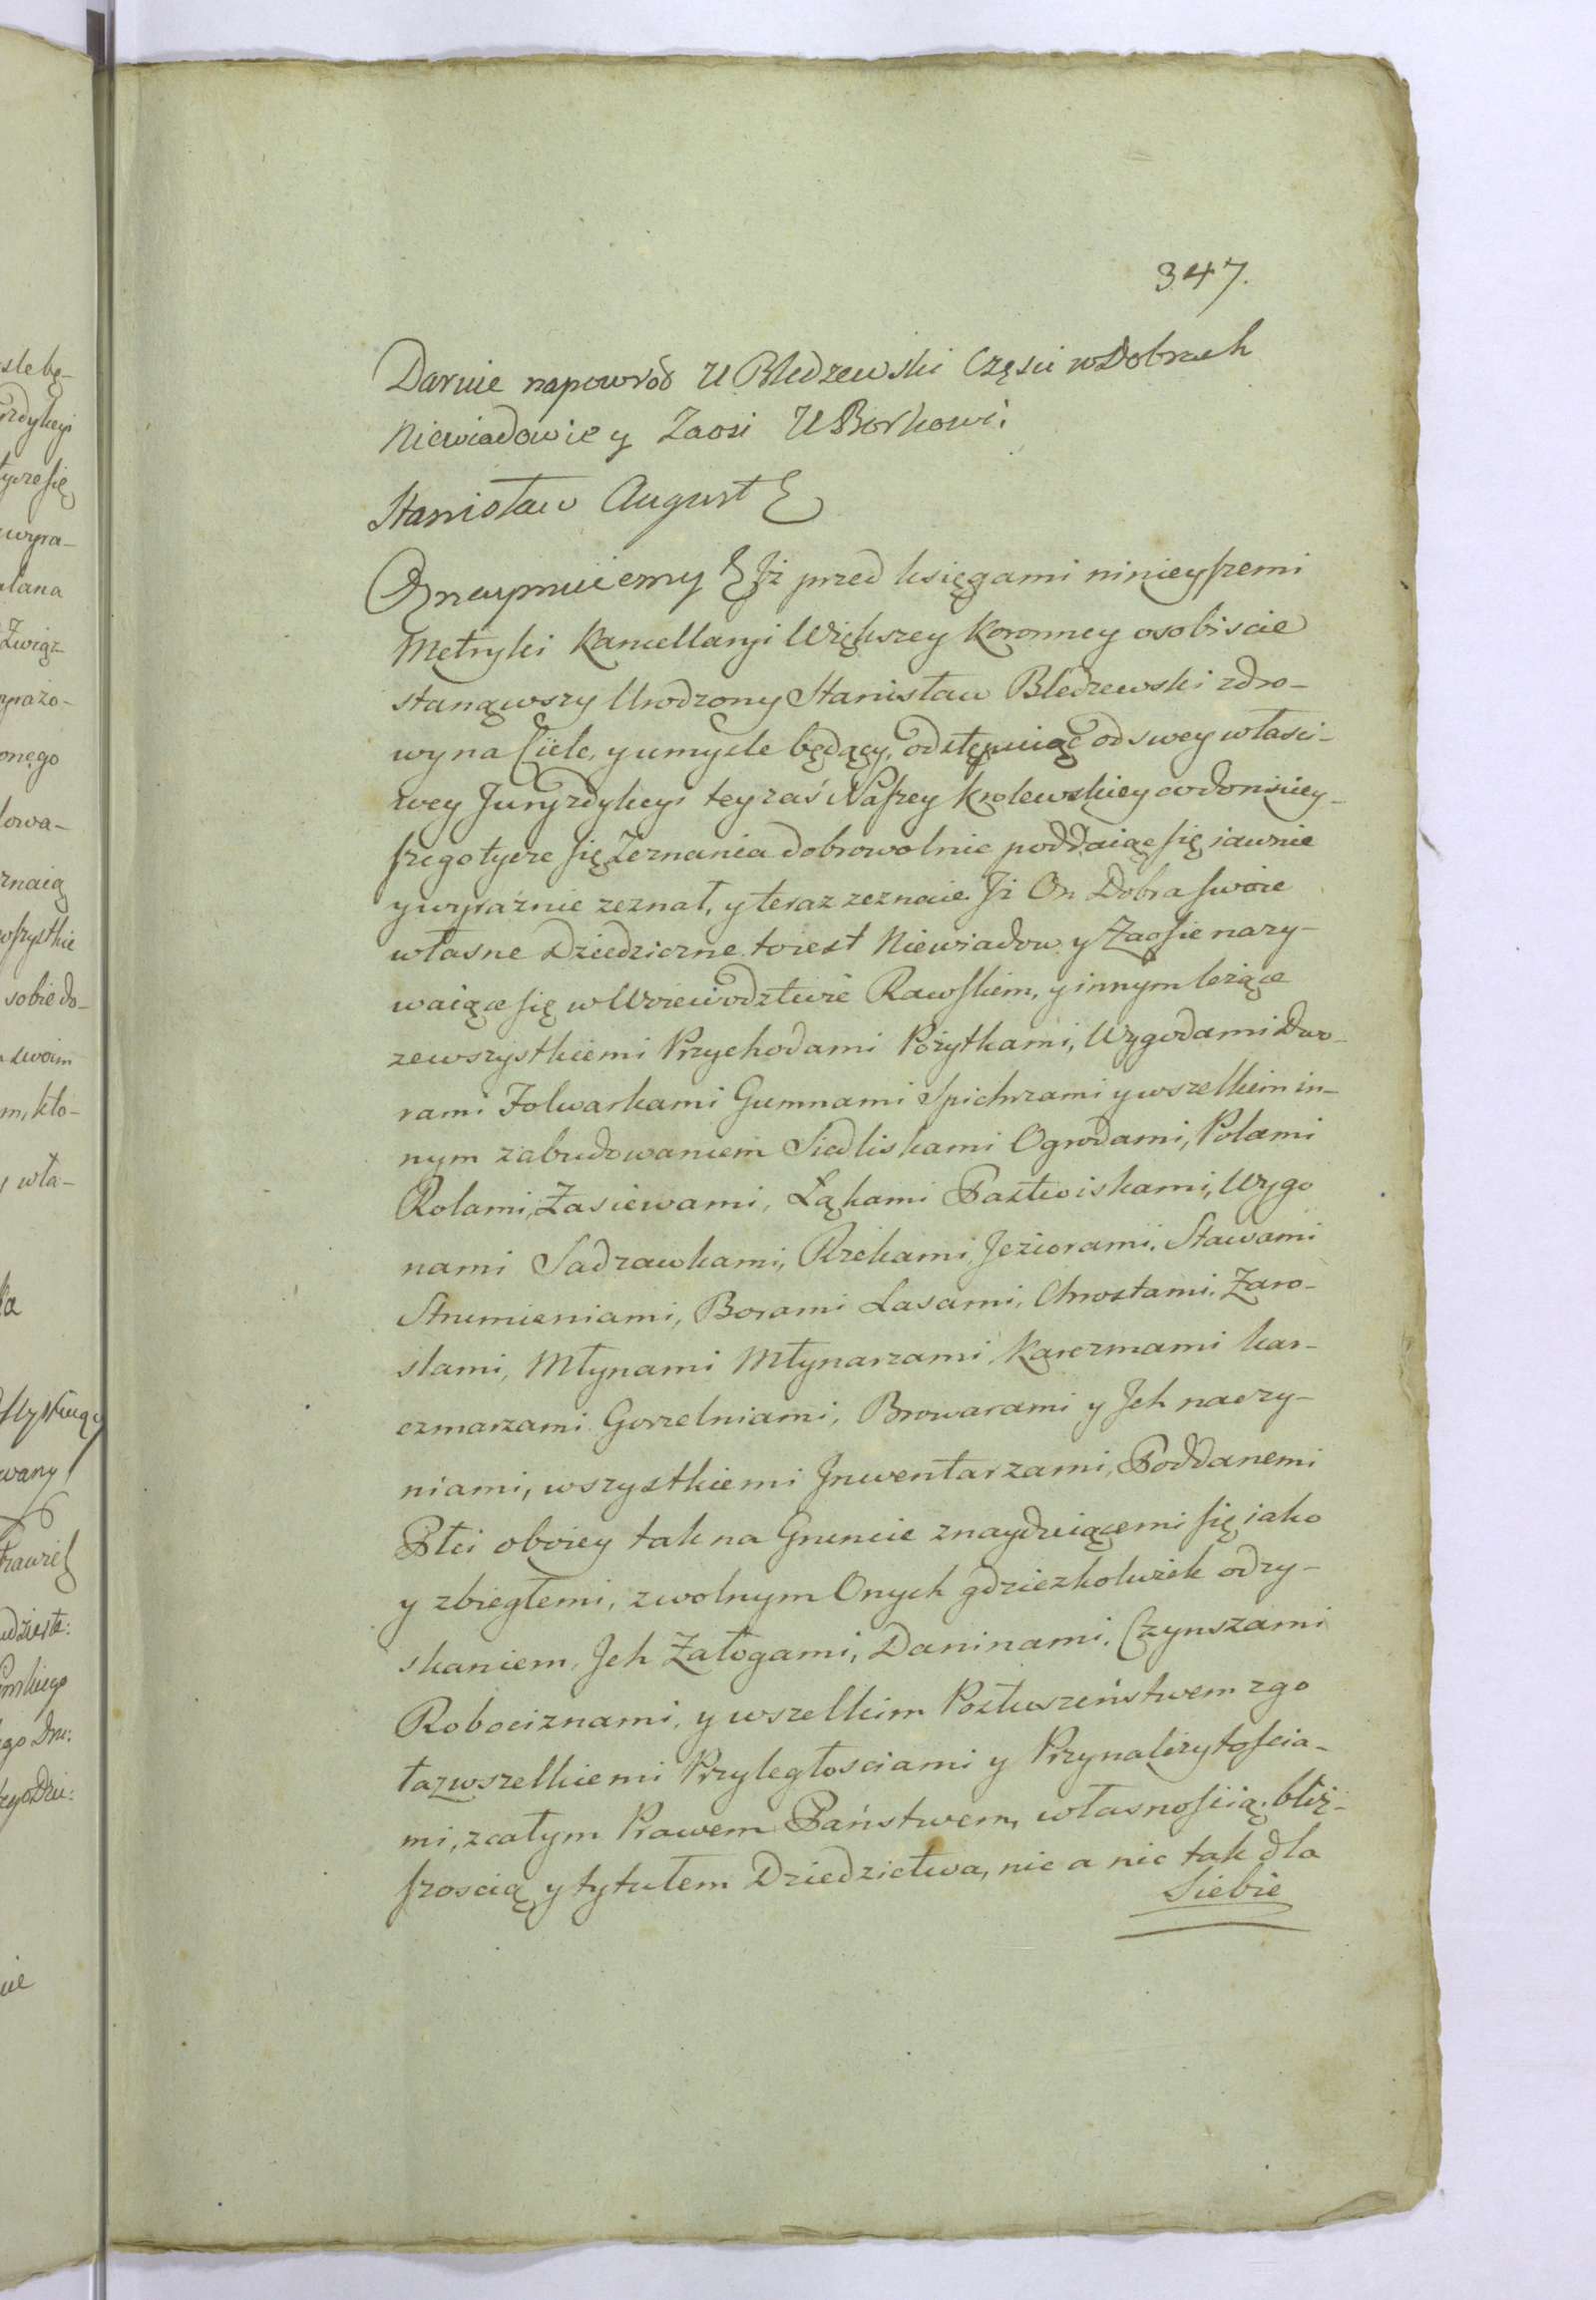 347.
Daruie napowród U Bledzewski Częsci w Dobrach
Niewiadowie y Zaosi U Borkowi.
Stanisław August
Oznaymuiemy Iż przed księgami ninieyszemi
Metryki Kancellaryi Większey Koronney osobiscie
stanąwszy Urodzony Stanisław Bledzewski zdro-
wy na Ciele, y umysle będący, odstępuiąc od swey własci-
wey Juryzdykcyi tey zaś Naszey Krolewskiey co do niniey-
szego tycze się Zeznania dobrowolnie poddaiąc się iawnie
y wyraźnie zeznał, y teraz zeznaie Iż On Dobra swoie
własne Dziedziczne to iest Niewiadow y Zaosie nazy-
waiące się w Woiewodztwie Rawskiem, y innym leżące
ze wszystkiemi Przychodami Pożytkami, Wygodami Dwo-
rami Folwarkami Gumnami Spichrzami y wszelkim in-
nym zabudowaniem Siedliskami Ogrodami, Polami
Rolami, Zasiewami, Łąkami Pastwiskami, Wygo
nami Sadzawkami, Rzekami, Jeziorami, Stawami
Strumieniami, Borami Lasami, Chrostami, Zaro-
slami, Młynami Młynarzami Karczmami kar-
czmarzami Gorzelniami, Browarami y Ich naczy-
niami, wszystkiemi Inwentarzami, Poddanemi
Płci oboiey tak na Gruncie znayduiącemi się iako
y zbiegłemi, z wolnym Onych gdzieżkolwiek odzy-
skaniem, Ich Załogami, Daninami, Czynszami
Robociznami, y wszelkim Posłuszeństwem zgo
ła z wszelkiemi Przyległosciami y Przynależytoscia-
mi, z całym Prawem Państwem, własnoscią, bliż-
szoscią y tytułem Dziedzictwa, nic a nic tak dla
Siebie